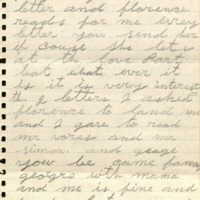 letter and florence
reads for me every
letter you send her
of couse she let us
at the love Part
but what ever it
is it is very interest
letters I asked
florence to land me
and I gave to read
mr and mr
simon and
you be came
georges with mama
and me is fine and